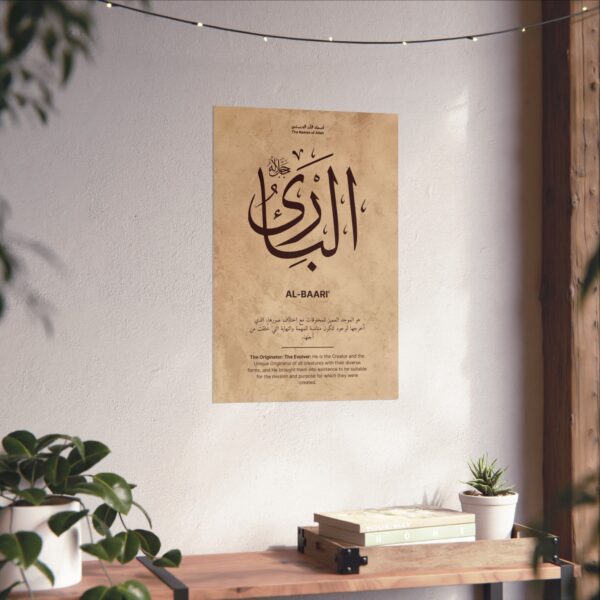 أسماء الله الحسنى
The Names of Allah
جل جلاله
البارئ
AL-BAARI'
هو الموجد المميز للمخلوقات مع اختلاف صورها، الذي
أخرجها لوجود لتكون مناسبة للمهمة والنهاية التي خلقت من
أجلها.
The Originator; The Evolver: He is the Creator and the
Unique Originator of all creatures with their diverse
forms, and He brought them into existence to be suitable
for the mission and purpose for which they were
created.
HOME